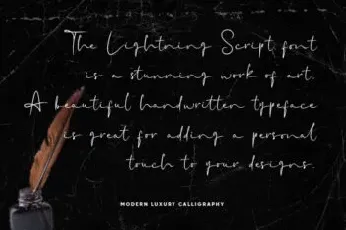 The Lightning Script font
is a stunning work of art.
A beautiful handwritten typeface
is great for adding a personal
touch to your designs.
MODERN LUXURY CALLIGRAPHY